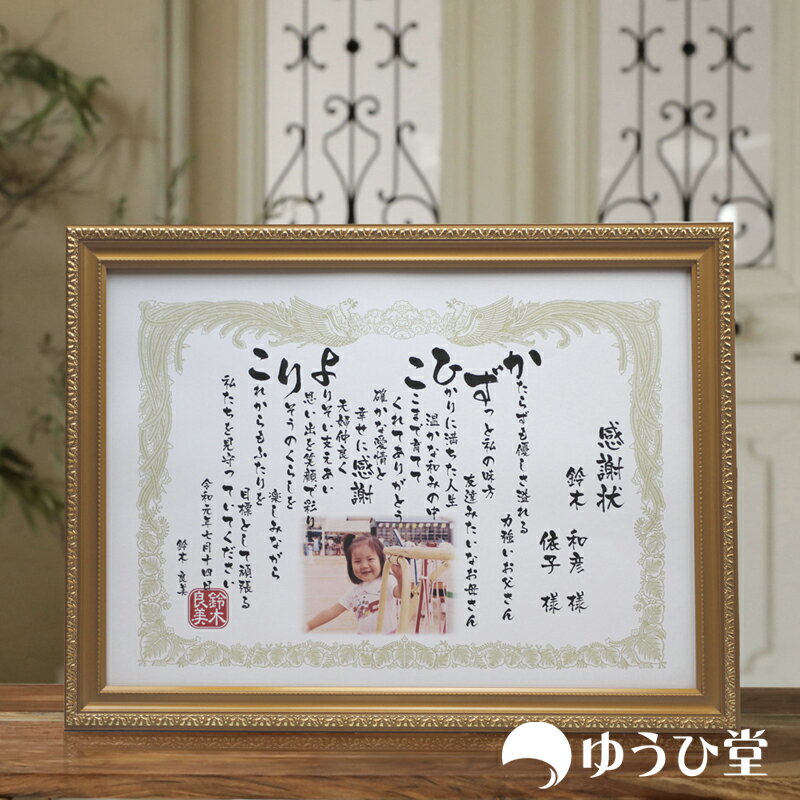 感謝状
鈴木 和彦 様
依子 様
かたらずも優しさ溢れる
力強いお父さん
ずっと私の味方
友達みたいなお母さん
ひかりに満ちた人生
温かな和みの中
ここまで育てて
くれてありがとう
確かな愛情と
幸せに感謝
夫婦仲良く
よりそい支えあい
思い出を笑顔で彩り
りそうのくらしを
楽しみながら
これからもふたりを
目標として頑張る
私たちを見守っていてください
令和元年七月十四日
鈴木 良美
鈴木良美
ゆうひ堂